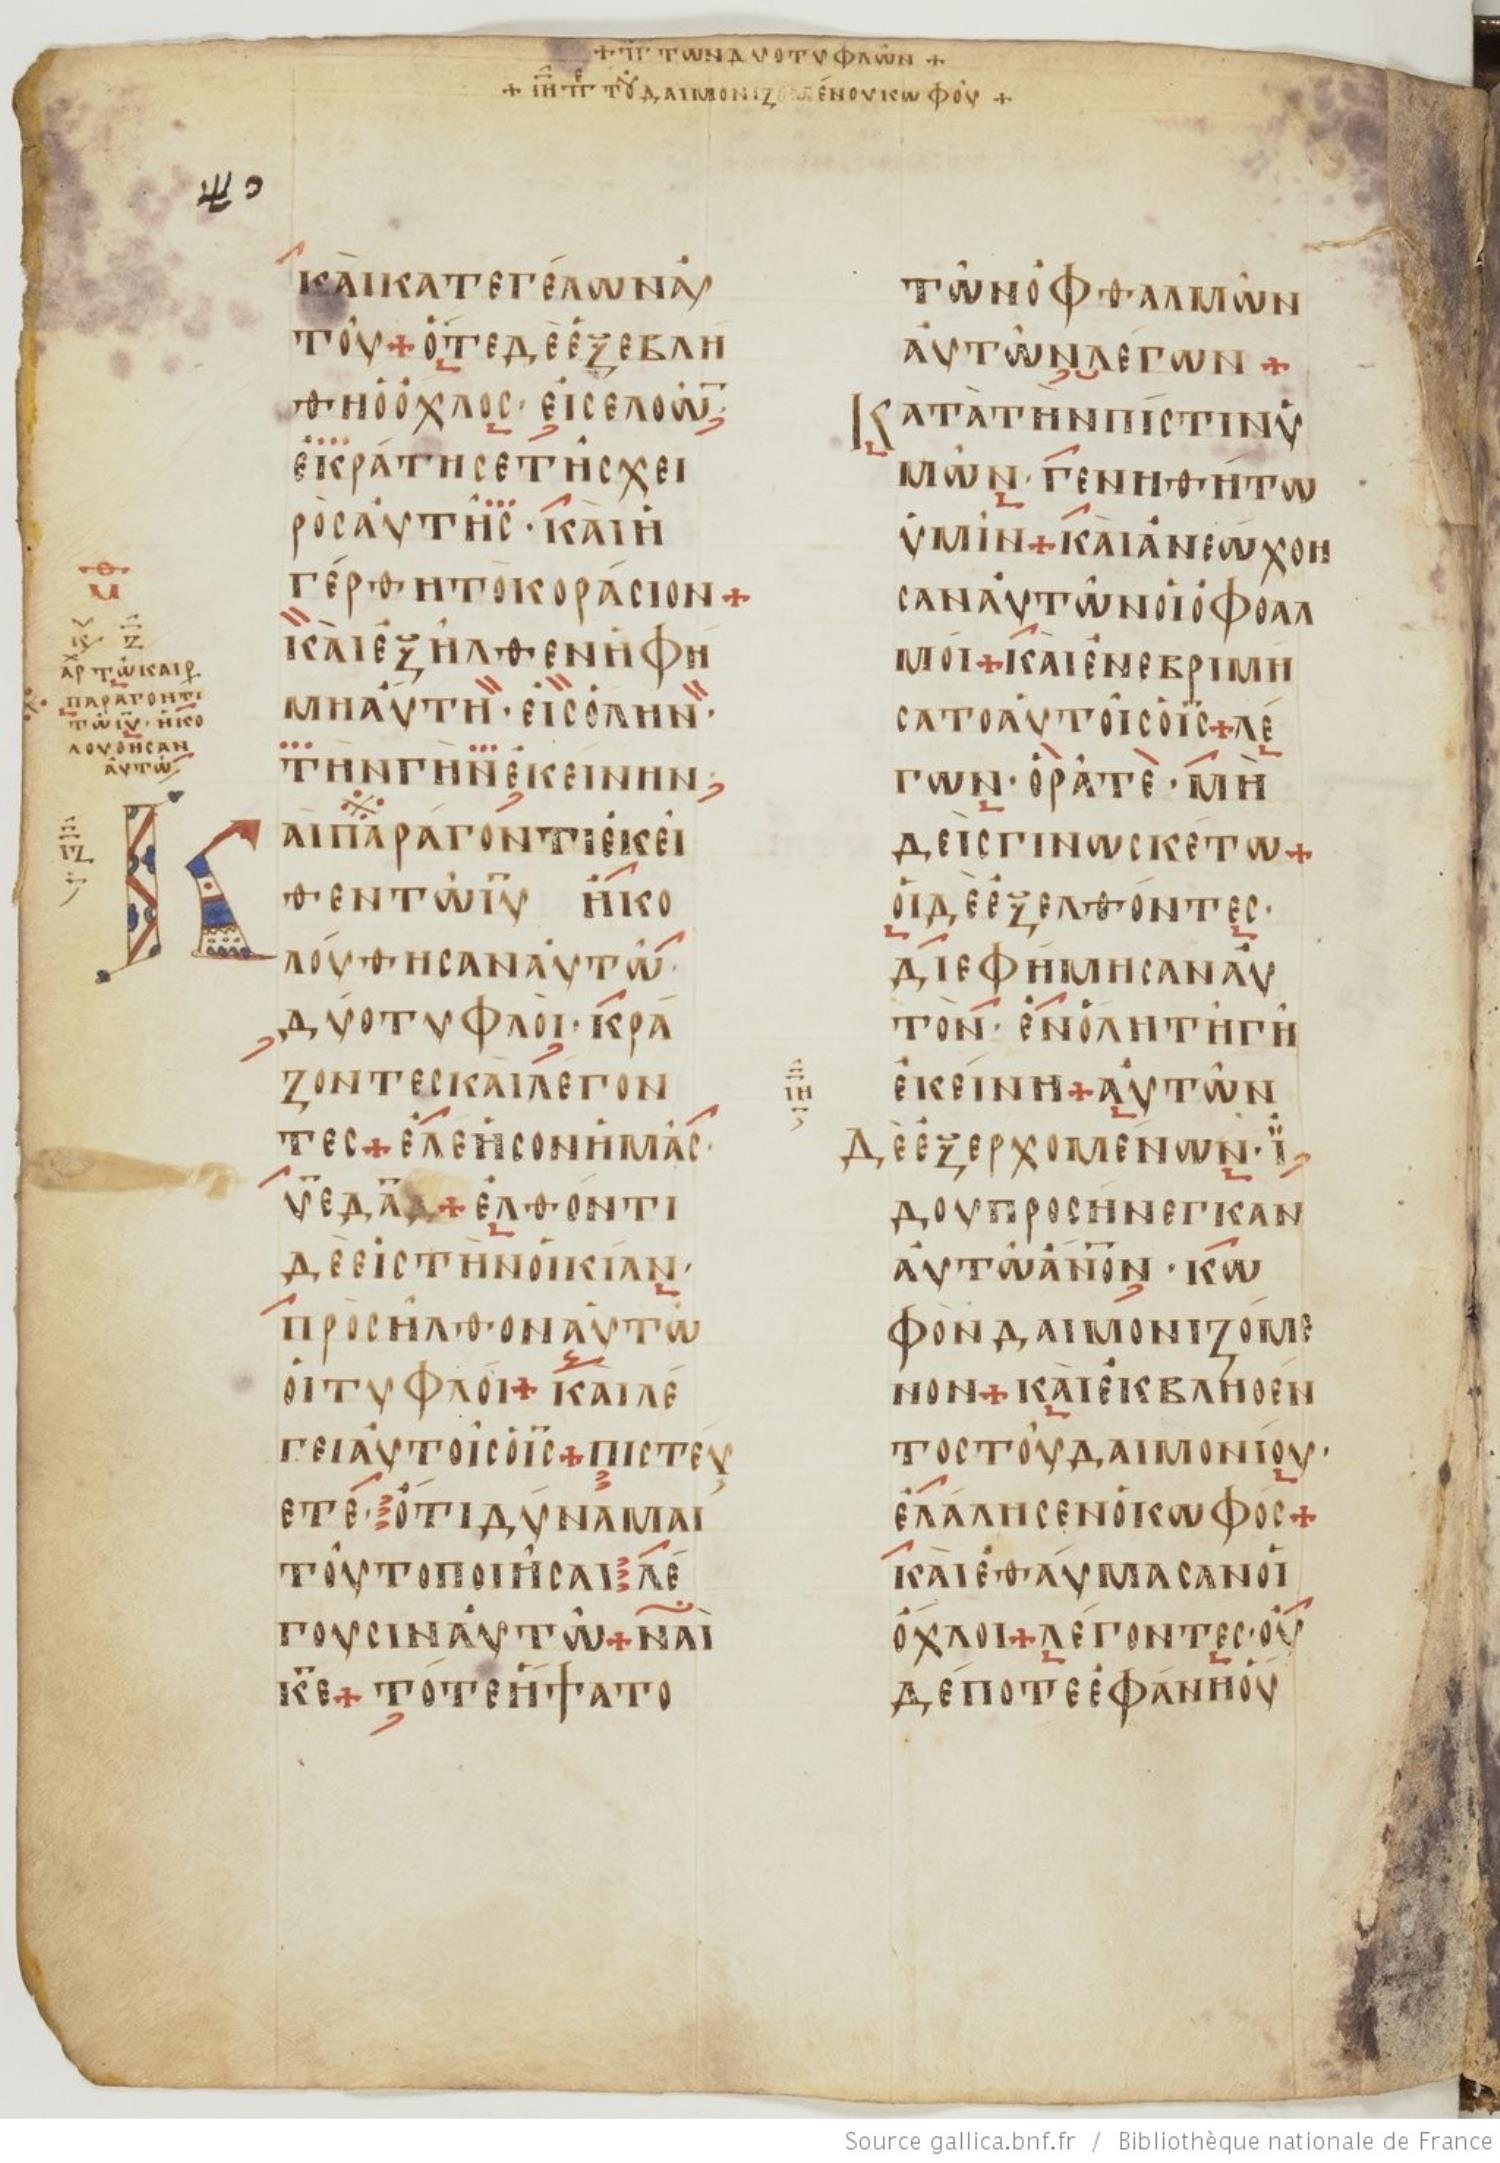 + ΙΓ ΤΩΝ ΔΥΟ ΤΥΦΛΩΝ +
ΤΟΥ ΔΑΙΜΟΝΙΖΟΜΕΝΟΥ ΚΩΦΟΥ +
ΚΑΙ ΚΑΤΕΓΕΛΩΝ ΑΥ
ΤΟΥ + ΟΤΕ ΔΕ ΕΞΕΒΛΗ
ΘΗ Ο ΟΧΛΟΣ · ΕΙΣΕΛΘΩΝ
ΕΚΡΑΤΗΣΕ ΤΗΣ ΧΕΙ
ΡΟΣ ΑΥΤΗΣ · ΚΑΙ Η
ΓΕΡΘΗ ΤΟ ΚΟΡΑΣΙΟΝ +
ΚΑΙ ΕΞΗΛΘΕΝ Η ΦΗ
ΜΗ ΑΥΤΗ · ΕΙΣ ΟΛΗΝ ·
ΤΗΝ ΓΗΝ ΕΚΕΙΝΗΝ
ΑΡ ΤΩ ΚΑΙΡ
ΠΑΡΑΓΟΝΤΙ
ΤΩ ΙΥ · ΗΚΟ
ΛΟΥΘΗΣΑΝ
ΑΥΤΩ
ΚΑΙ ΠΑΡΑΓΟΝΤΙ ΕΚΕΙ
ΘΕΝ ΤΩ ΙΥ ΗΚΟ
ΛΟΥΘΗΣΑΝ ΑΥΤΩ ·
ΔΥΟ ΤΥΦΛΟΙ · ΚΡΑ
ΖΟΝΤΕΣ ΚΑΙ ΛΕΓΟΝ
ΤΕΣ + ΕΛΕΗΣΟΝ ΗΜΑΣ ·
ΥΕ ΔΑΔ + ΕΛΘΟΝΤΙ
ΔΕ ΕΙΣ ΤΗΝ ΟΙΚΙΑΝ ·
ΠΡΟΣΗΛΘΟΝ ΑΥΤΩ
ΟΙ ΤΥΦΛΟΙ + ΚΑΙ ΛΕ
ΓΕΙ ΑΥΤΟΙΣ Ο ΙΣ + ΠΙΣΤΕΥ
ΕΤΕ · ΟΤΙ ΔΥΝΑΜΑΙ
ΤΟΥΤΟ ΠΟΙΗΣΑΙ ΛΕ
ΓΟΥΣΙΝ ΑΥΤΩ + ΝΑΙ
ΚΕ + ΤΟΤΕ ΗΨΑΤΟ
ΤΩΝ ΟΦΘΑΛΜΩΝ
ΑΥΤΩΝ ΛΕΓΩΝ +
ΚΑΤΑ ΤΗΝ ΠΙΣΤΙΝ Υ
ΜΩΝ · ΓΕΝΗΘΗΤΩ
ΥΜΙΝ + ΚΑΙ ΑΝΕΩΧΘΗ
ΣΑΝ ΑΥΤΩΝ ΟΙ ΟΦΘΑΛ
ΜΟΙ + ΚΑΙ ΕΝΕΒΡΙΜΗ
ΣΑΤΟ ΑΥΤΟΙΣ Ο ΙΣ + ΛΕ
ΓΩΝ · ΟΡΑΤΕ · ΜΗ
ΔΕΙΣ ΓΙΝΩΣΚΕΤΩ +
ΟΙ ΔΕ ΕΞΕΛΘΟΝΤΕΣ ·
ΔΙΕΦΗΜΗΣΑΝ ΑΥ
ΤΟΝ · ΕΝ ΟΛΗ ΤΗ ΓΗ
ΕΚΕΙΝΗ + ΑΥΤΩΝ
ΔΕ ΕΞΕΡΧΟΜΕΝΩΝ · Ϊ
ΔΟΥ ΠΡΟΣΗΝΕΓΚΑΝ
ΑΥΤΩ ΑΝΟΝ · ΚΩ
ΦΟΝ ΔΑΙΜΟΝΙΖΟΜΕ
ΝΟΝ + ΚΑΙ ΕΚΒΛΗΘΕΝ
ΤΟΣ ΤΟΥ ΔΑΙΜΟΝΙΟΥ ·
ΕΛΑΛΗΣΕΝ Ο ΚΩΦΟΣ +
ΚΑΙ ΕΘΑΥΜΑΣΑΝ ΟΙ
ΟΧΛΟΙ + ΛΕΓΟΝΤΕΣ · ΟΥ
ΔΕΠΟΤΕ ΕΦΑΝΗ ΟΥ
Source gallica.bnf.fr / Bibliothèque nationale de France